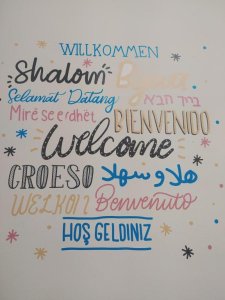 WILLKOMMEN
Shalom
Selamat Datang ברוך הבא
Mirë se erdhët BIENVENIDO
Welcome
CROESO هلا و سهلا
WELKOM Benvenuto
HOŞ GELDINIZ